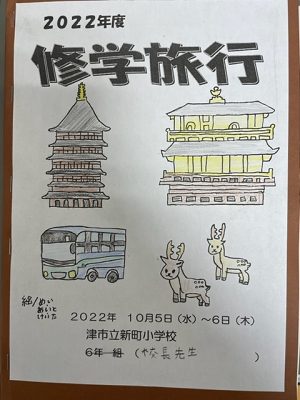 2022年度
修学旅行
絵/めい
めいと
けいた
2022年 10月5日(水)~6日(木)
津市立新町小学校
6年 組 (校長先生 )